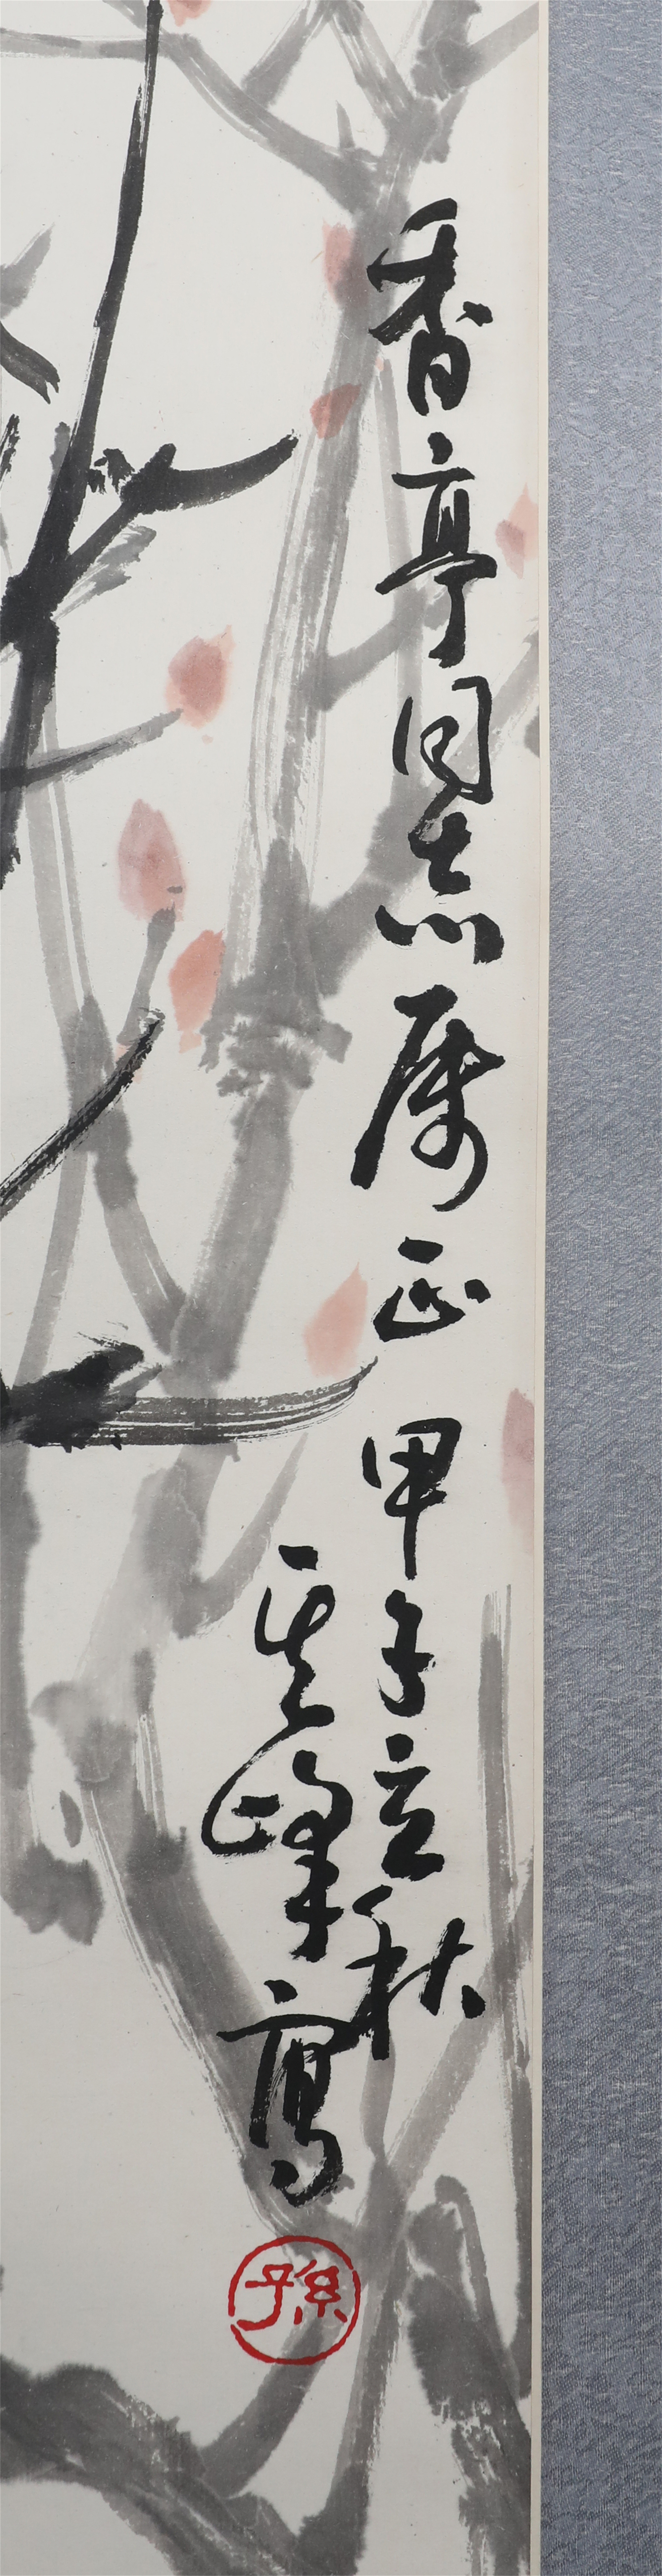 香亭同志属正 甲子立秋
其峰寫
孫